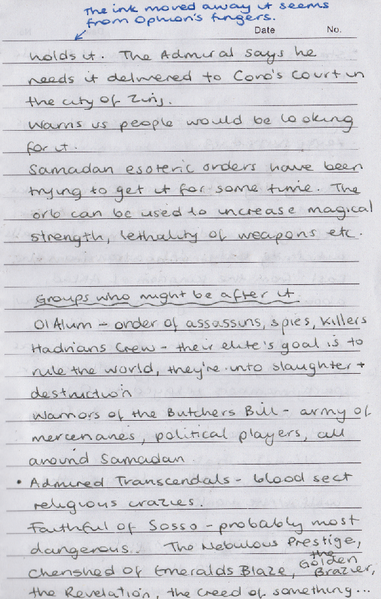 The ink moved away it seems
from Ophion's fingers.
Date No.
holds it. The Admiral says he
needs it delivered to Coro's Court in
the city of Zinj.
Warns us people would be looking
for it.
Samadan esoteric orders have been
trying to get it for some time. The
orb can be used to increase magical
strength, lethality of weapons etc.
Groups who might be after it
Ol Alum - order of assassins, spies, killers
Hadrians Crew - their elite's goal is to
rule the world, they're into slaughter +
destruction
Warriors of the Butchers Bill - army of
mercenaries, political players, all
around Samadan
• Admired Transcendals - blood sect
religious crazies.
Faithful of Sosso - probably most
dangerous. The Nebulous Prestige,
Cherished of Emeralds Blaze, the Golden Brazier,
the Revelation, the Creed of something...